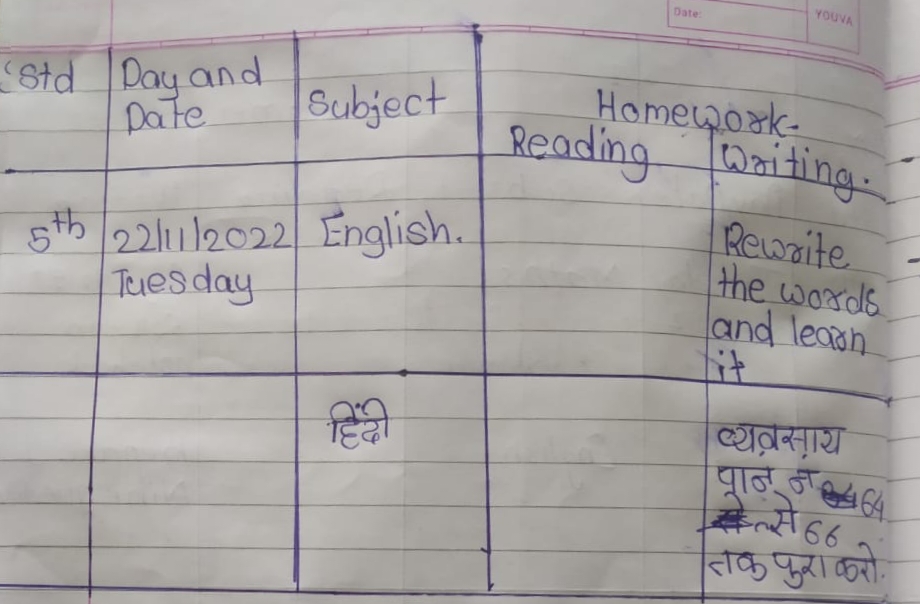 Date:
YOUVA
Std
Day and
Date
Subject
Homework-
Reading
Writing.
5th
22/11/2022
Tuesday
English.
Rewrite
the words
and learn
it
हिंदी
व्यवसाय
पान न 64
से 66
तक पुरा करो.